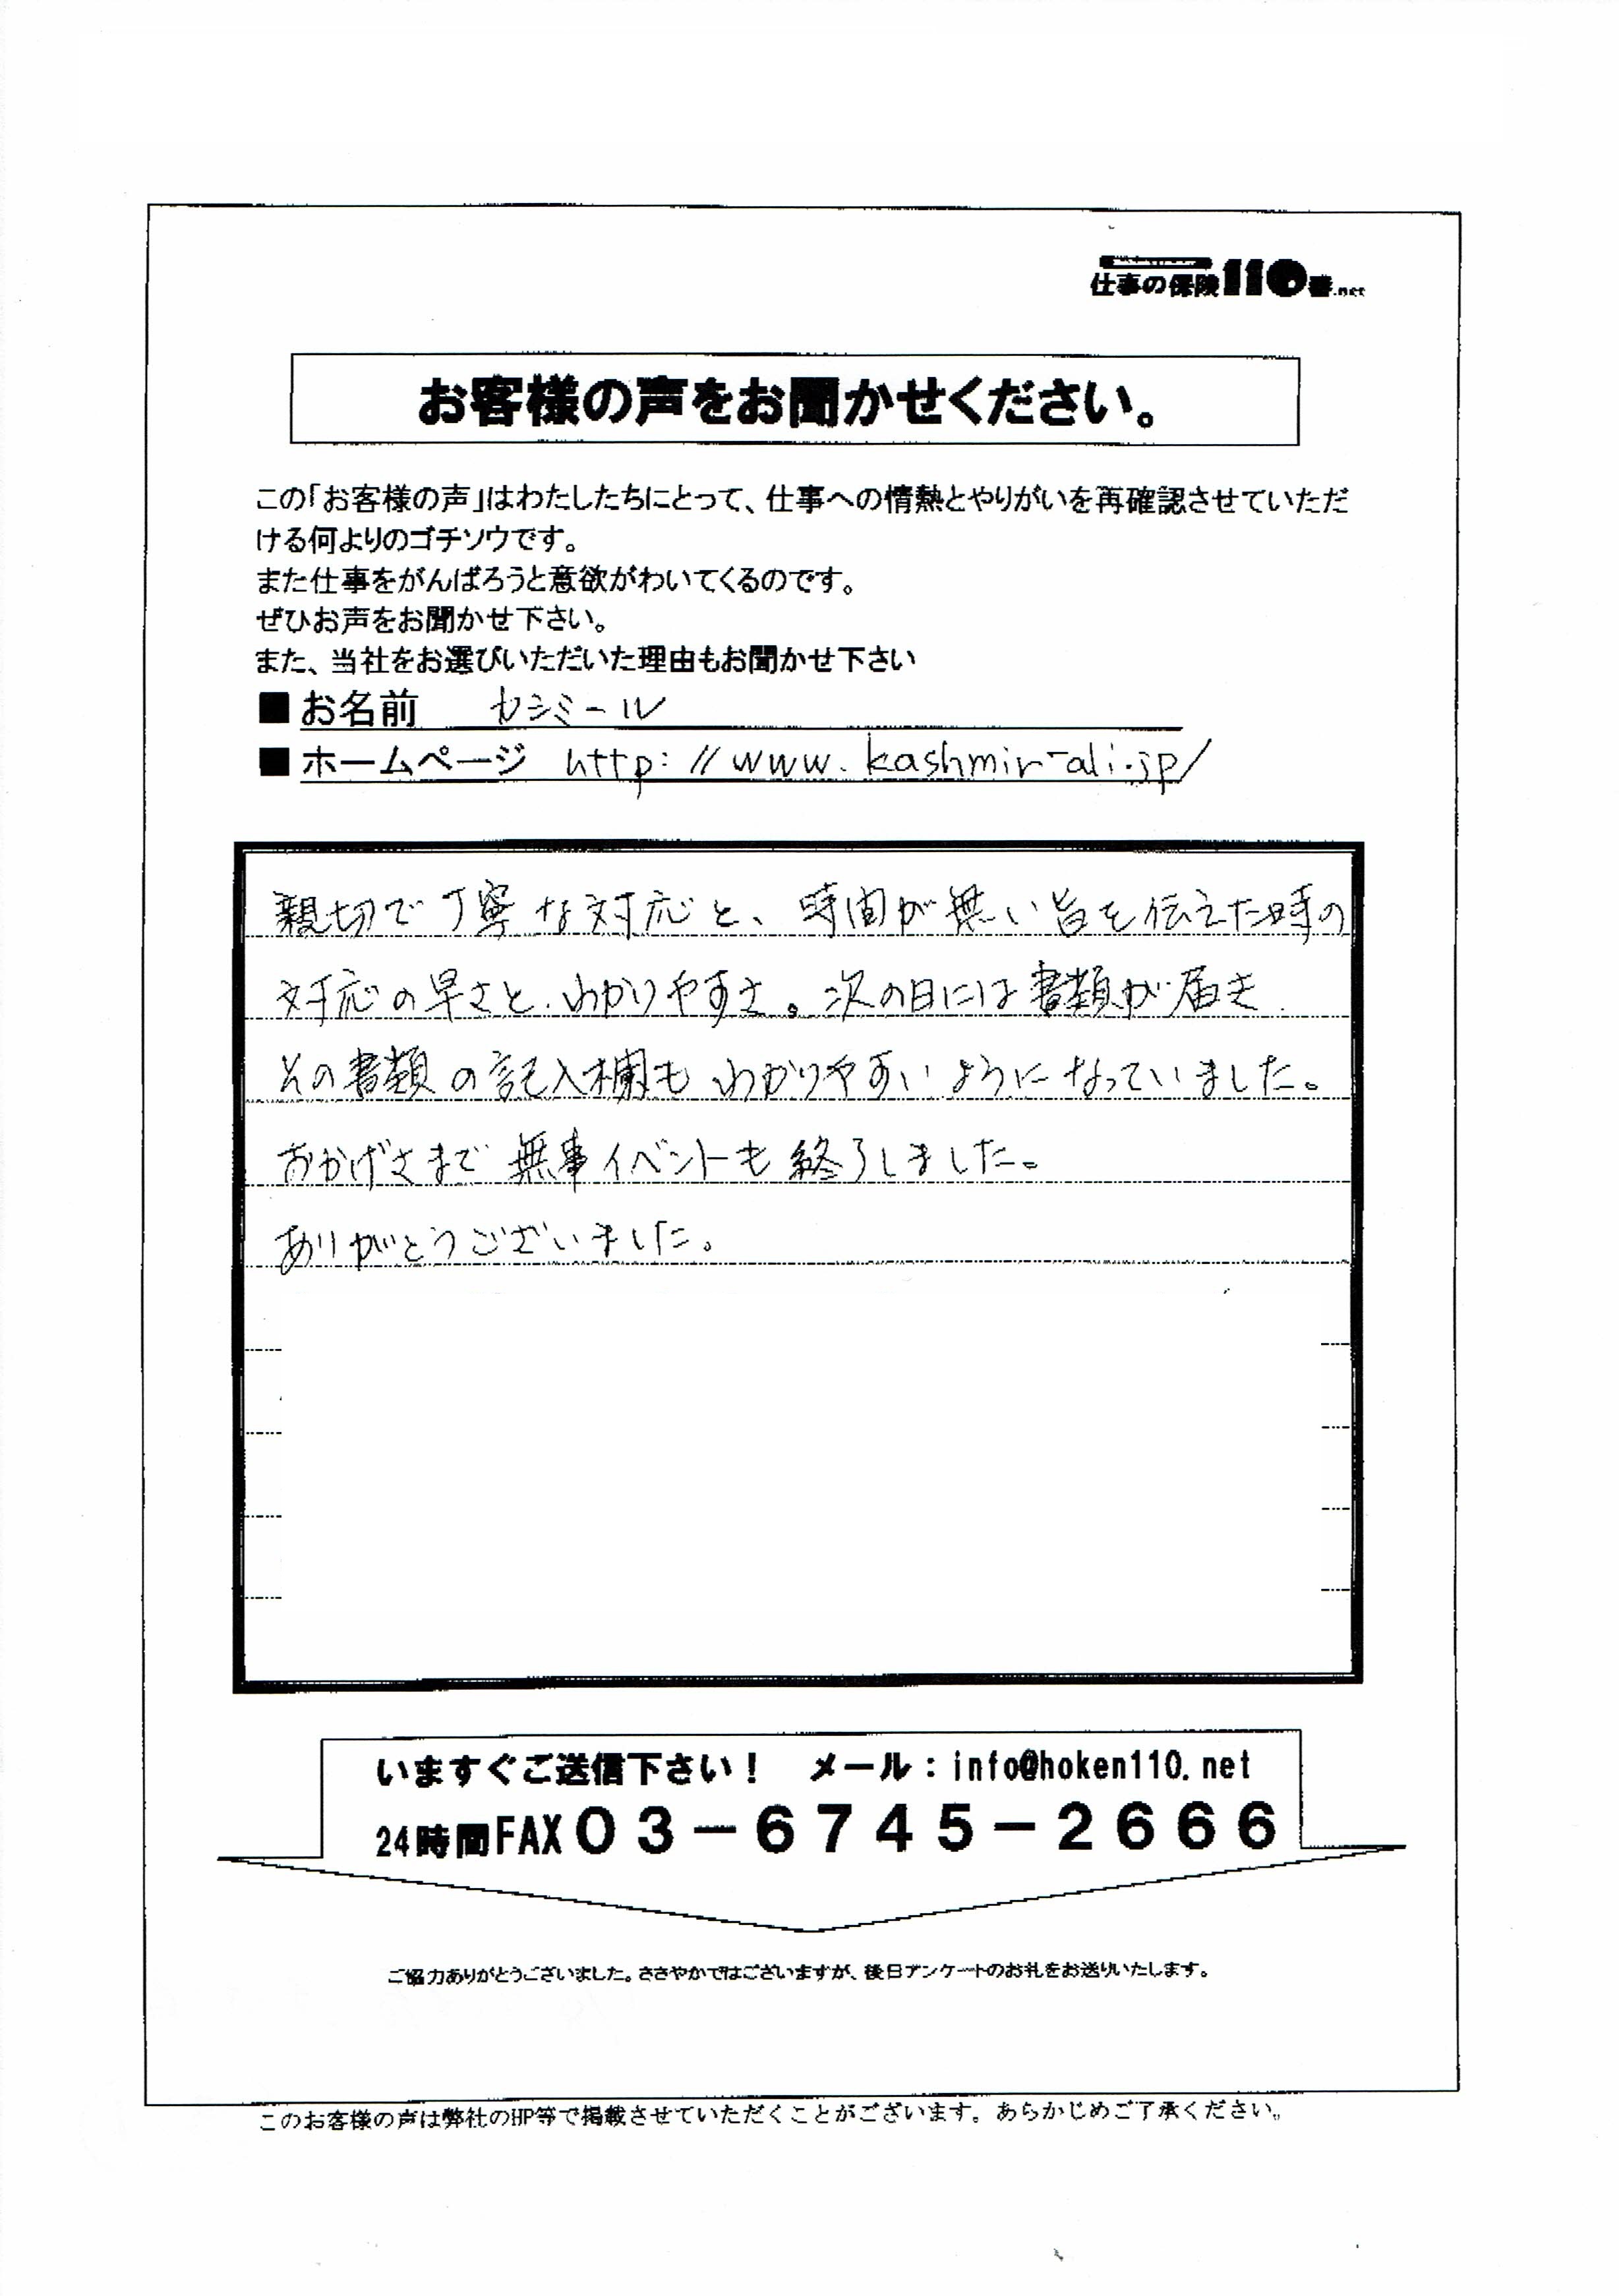 仕事の保険110番.net
お客様の声をお聞かせください。
この「お客様の声」はわたしたちにとって、仕事への情熱とやりがいを再確認させていただ
ける何よりのゴチソウです。
また仕事をがんばろうと意欲がわいてくるのです。
ぜひお声をお聞かせ下さい。
また、当社をお選びいただいた理由もお聞かせ下さい
■お名前 カシミール
■ホームページ http://www.kashmir-ali.jp/
親切で丁寧な対応と、時間が無い旨を伝えた時の
対応の早さと、わかりやすさ。次の日には書類が届き
その書類の記入欄もわかりやすいようになっていました。
おかげさまで無事イベントも終了しました。
ありがとうございました。
いますぐご送信下さい! メール:info@hoken110.net
24時間FAX03-6745-2666
ご協力ありがとうございました。ささやかではございますが、後日アンケートのお礼をお送りいたします。
このお客様の声は弊社のHP等で掲載させていただくことがございます。あらかじめご了承ください。